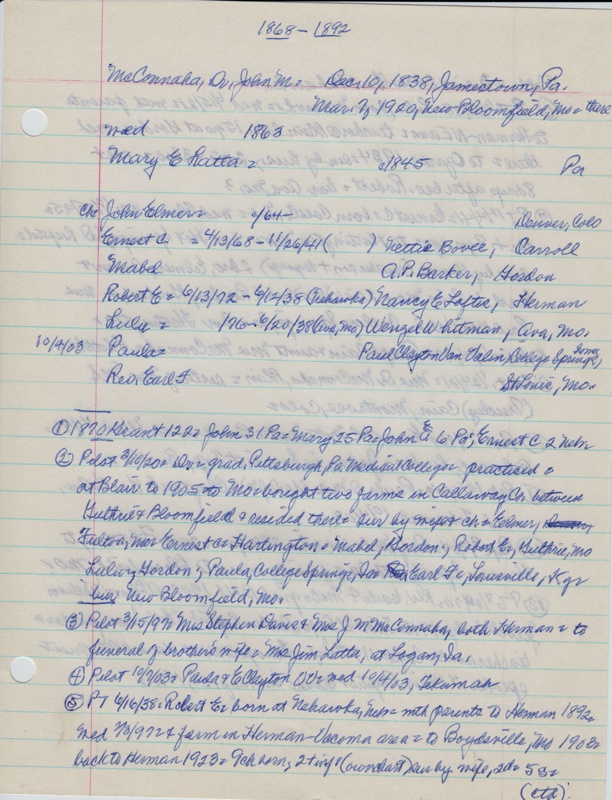 1868-1892
McConnaha, Dr. John M. = Dec. 10, 1838, Jamestown, Pa.
Mar. 7, 1920, New Bloomfield, Mo = there
med 1863
Mary E Latta = 1845 Pa
ch: John Elmer = /64- Denver, Colo
Ernest C = 4/13/68-11/26/41 ( ) Nettie Bovee, Carroll
Mabel A.P. Barker, Gordon
Robert E = 6/13/72-6/12/38 (Nehawka) Nancy E Loftis, Herman
Lulu = /76-6/20/38 (Ava, Mo) Wenzel Whitman, Ava, Mo.
10/4/03 Paula = Paul Clayton Van Valin, College Springs, Iowa
Rev. Earl F St Louis, Mo.
① 1870 Grant 122 = John 31 Pa = Mary 25 Pa = John E 6 Pa; Ernest C 2 Nebr
② Pilot 3/10/20 = Dr = grad. Pittsburgh, Pa Medical College = practised =
at Blair to 1905 to Mo = bought two farms in Callaway Co. between
Guthrie & Bloomfield & resided there = sur by wife & ch = Elmer,
Fulton, Mo; Ernest C = Hartington = Mabel, Gordon; Robert E, Guthrie, Mo
Lulu, Gordon; Paula, College Springs, Ia Earl F, Louisville, Ky =
bur New Bloomfield, Mo.
③ Pilot 3/15/97 = Mrs Stephen Davis & Mrs J M McConnaha, both Herman = to
funeral of brother's wife = Mrs Jim Latta, at Logan, Ia.
④ Pilot 10/7/03 = Paula & Clayton VV = med 10/4/03, Tekamah
⑤ PT 6/16/38 = Robert E = born at Nehawka, Nebr = with parents to Herman 1892 =
med /97 & farm in Herman-Vacoma area = to Boydsville, Mo 1903 =
back to Herman 1923 = 9 ch born, 2 + inf sur by wife, 2d = 5s =
(ctd)